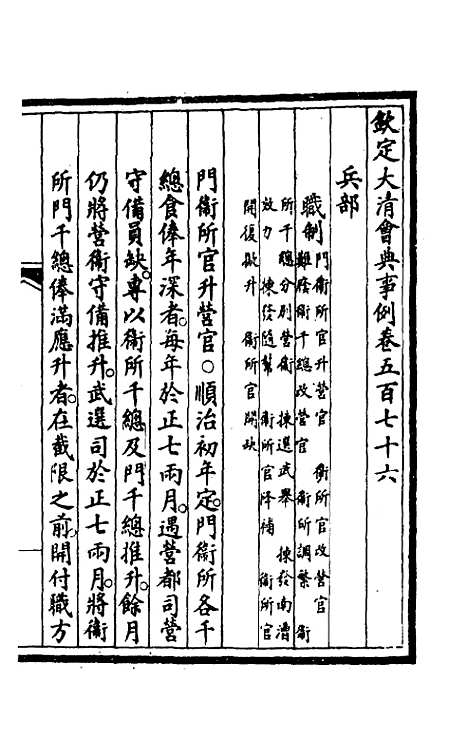 欽定大清會典事例卷五百七十六
兵部
職制
門衞所官升營官　衞所官改營官
難廕衞千總改營官　衞所調繁　衞
所千總分別營衞　揀選武舉　揀發南漕
效力　揀發隨幫　衞所官降補　衞所官
開復敍升　衞所官開缺
門衞所官升營官○順治初年定。門衞所各千
總食俸年深者。每年於正七兩月。遇營都司營
守備員缺。專以衞所千總及門千總推升。餘月
仍將營衞守備推升。武選司於正七兩月。將衞
所門千總俸滿應升者。在截限之前。開付職方